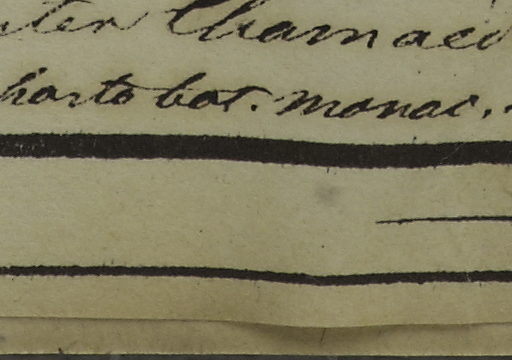 ter Chamaed
horto bot. monac.